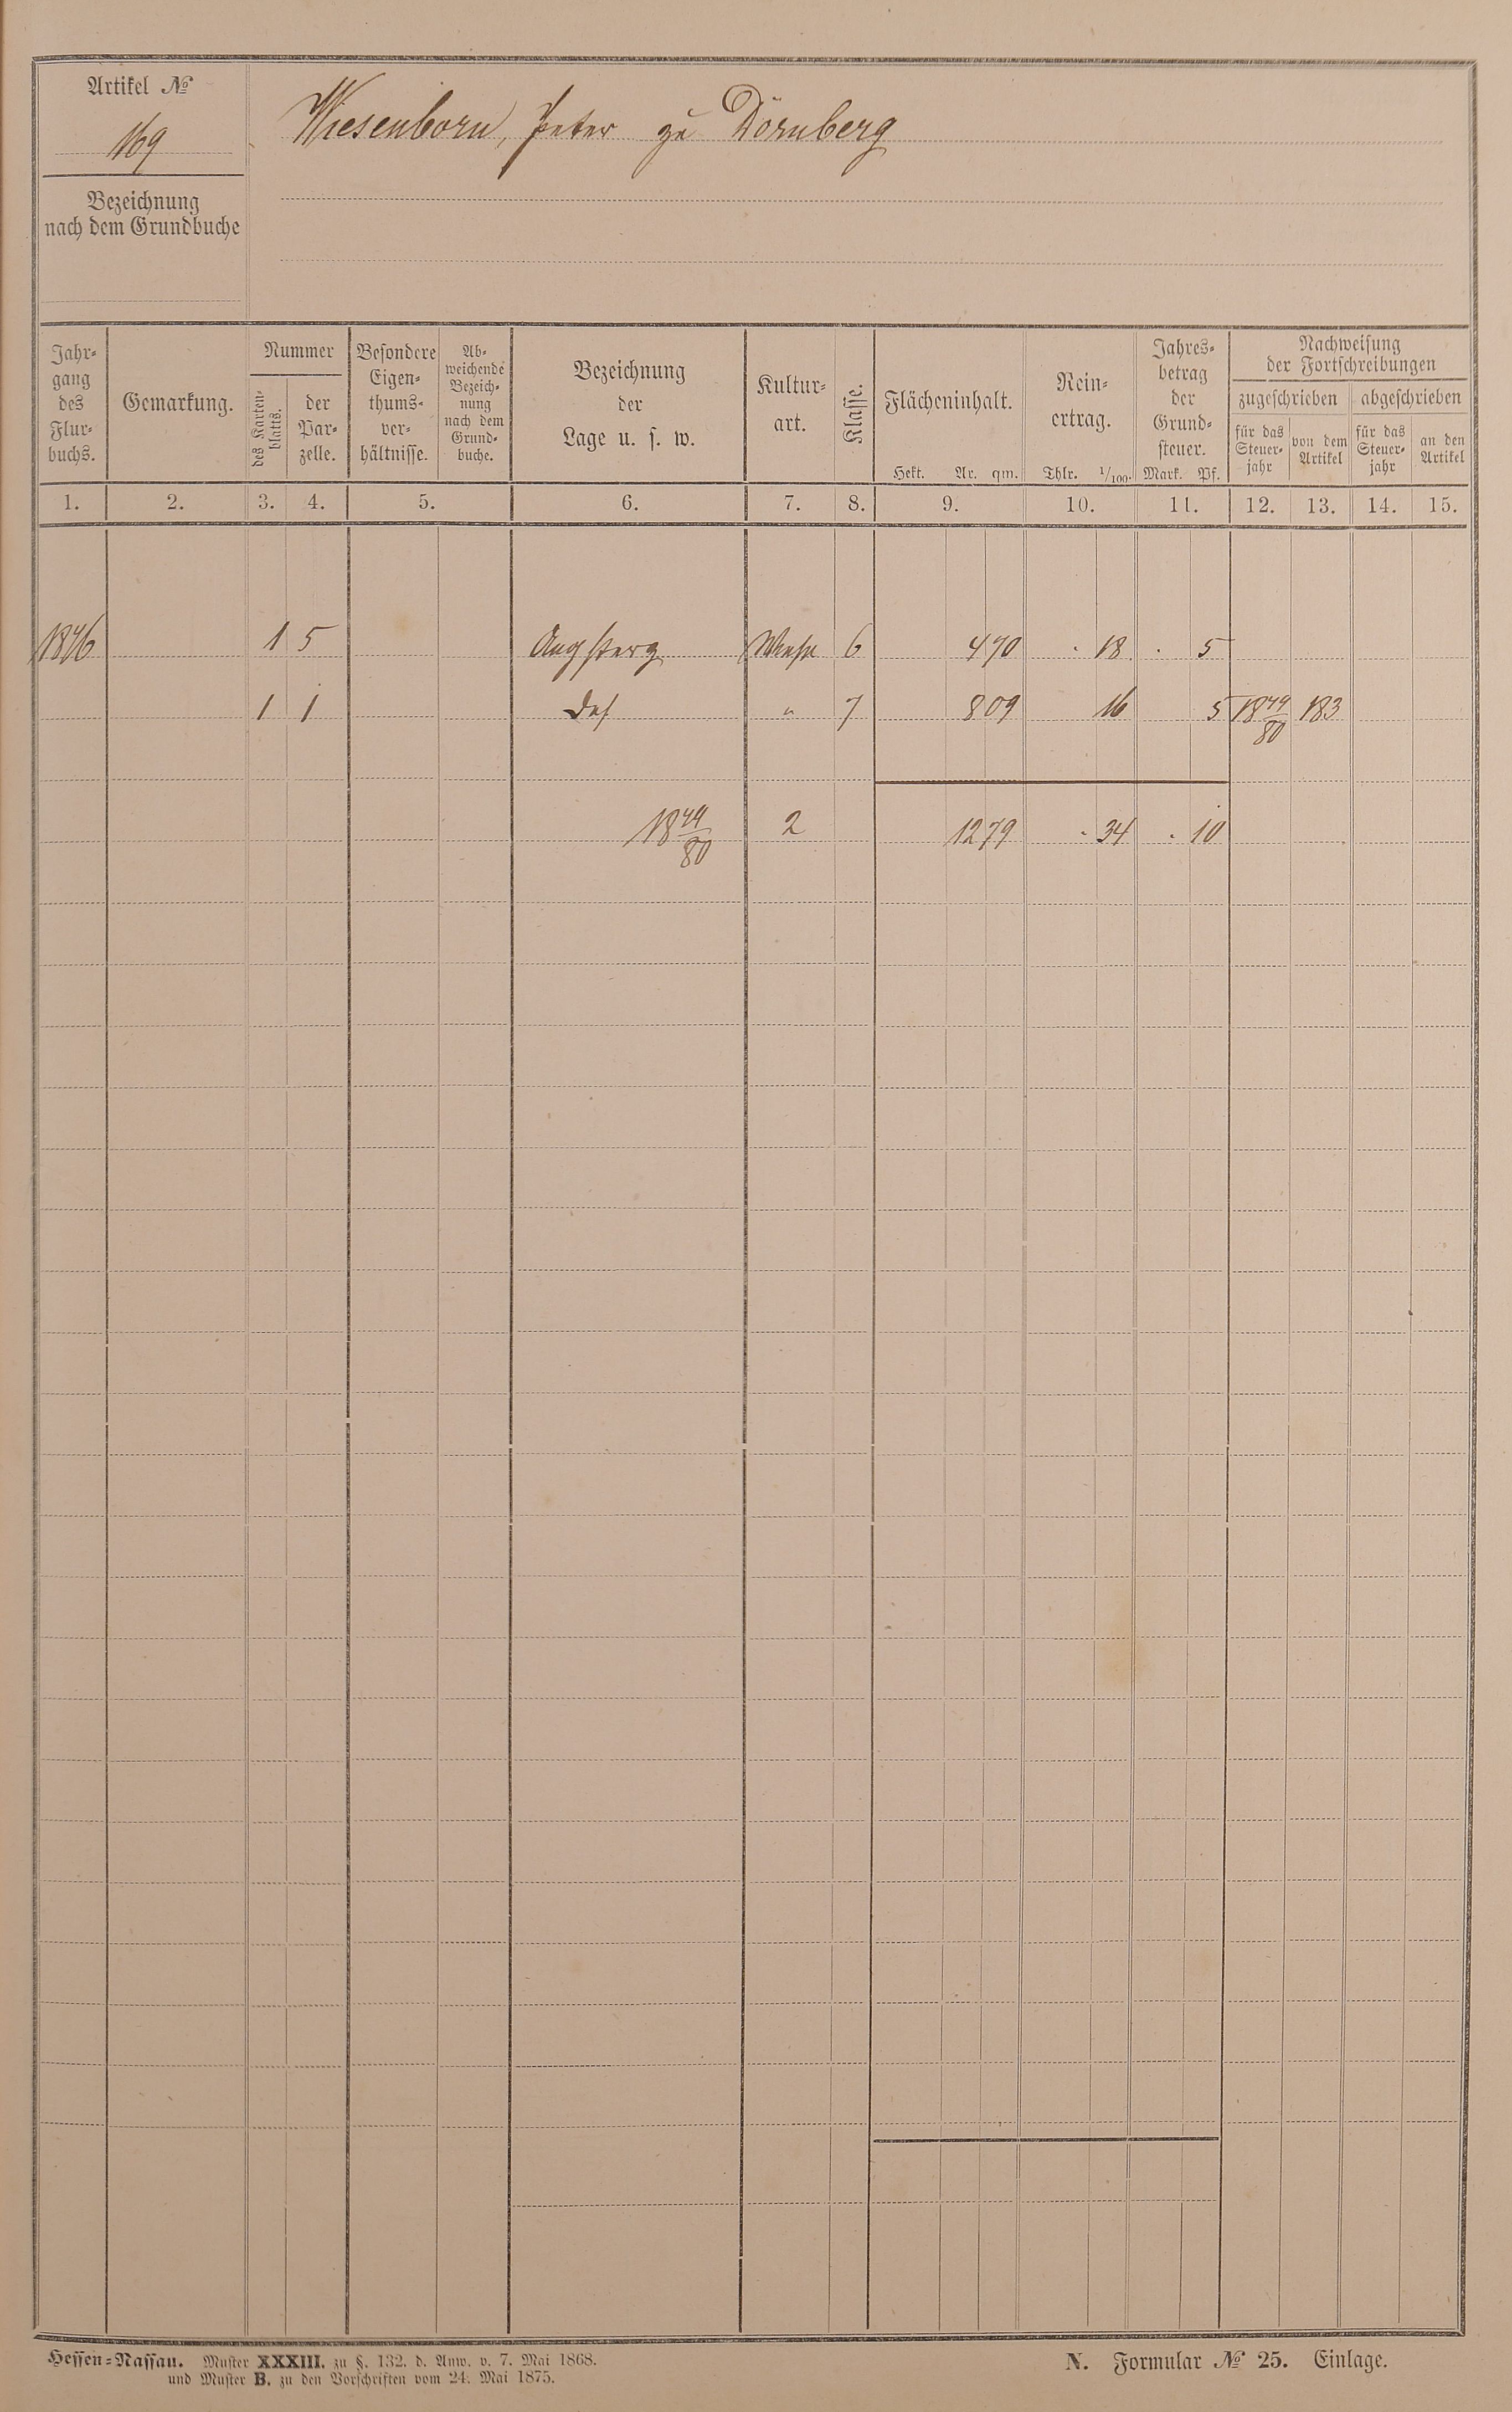 Artikel №
169
Wiesenborn, Peter zu Dörnberg
Bezeichnung
nach dem Grundbuche
Jahr-
gang
des
Flur-
buchs.
Gemarkung.
Nummer
des Karten-
blatts.
der
Par-
zelle.
Besondere
Eigen-
thums-
ver-
hältnisse.
Ab-
weichende
Bezeich-
nung
nach dem
Grund-
buche.
Bezeichnung
der
Lage u. s. w.
Kultur-
art.
Klasse.
Flächeninhalt.
Hekt. Ar. qm.
Rein-
ertrag.
Thlr. 1/100.
Jahres-
betrag
der
Grund-
steuer.
Mark. Pf.
Nachweisung
der Fortschreibungen
zugeschrieben abgeschrieben
für das
Steuer-
jahr
von dem
Artikel
für das
Steuer-
jahr
an den
Artikel
1. 2. 3. 4. 5. 6. 7. 8. 9. 10. 11. 12. 13. 14. 15.
1876 1 5 Wiese 6 470 . 18 . 5
1 1 das " 7 809 16 5 1879/80 183
1879/80 2 1279 . 34 . 10
Hessen-Nassau. Muster XXXIII. zu §. 132. d. Anw. v. 7. Mai 1868.
und Muster B. zu den Vorschriften vom 24. Mai 1875.
N. Formular № 25. Einlage.